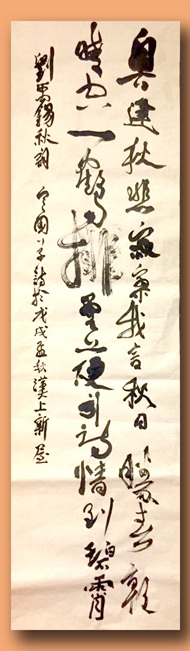 自古逢秋悲寂寥我言秋日勝春朝
晴空一鶴排雲上便引詩情到碧霄
劉禹錫秋詞 於戊戌孟秋漢上新屋